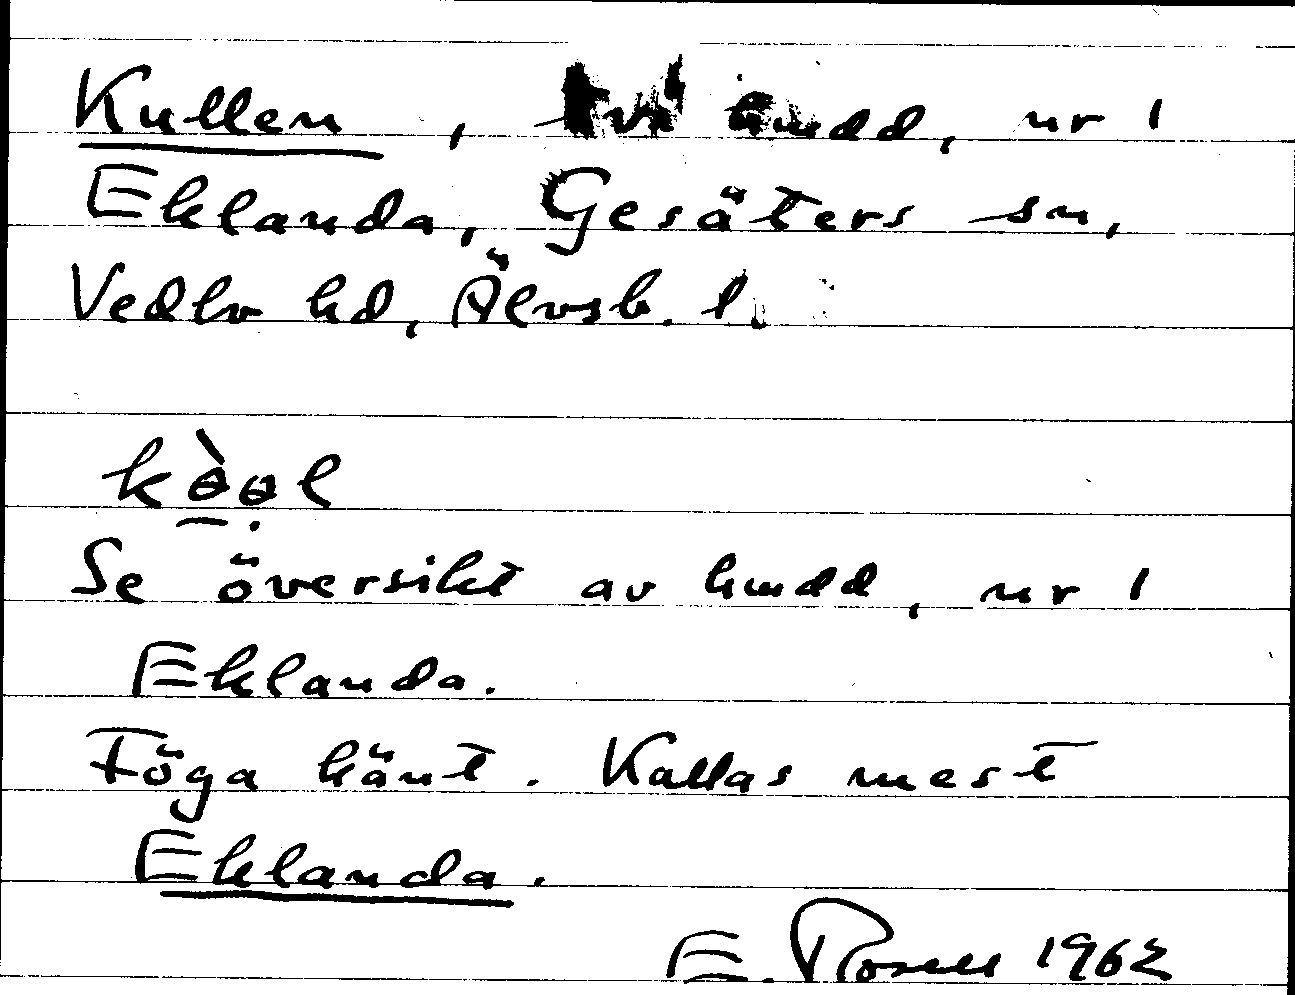 Kullen, två hmdd, nr 1
Eklanda, Gesäters sn,
Vedbo hd, Älvsb. l.
Se översikt av hmdd, nr 1
Eklanda.
Föga känt. Kallas mest
Eklanda.
E. Rosell 1962